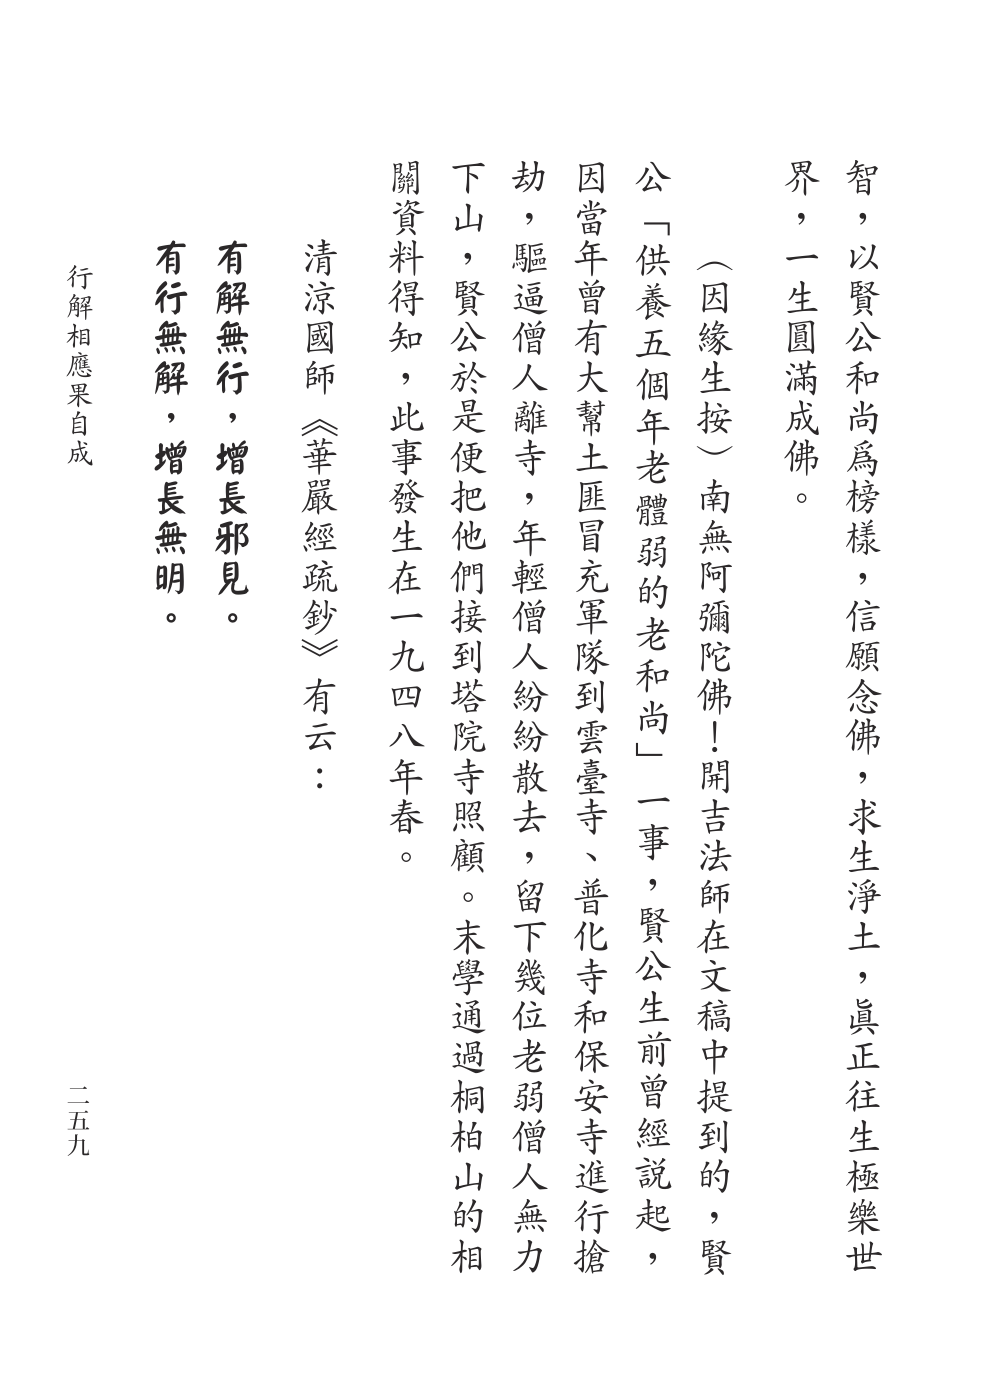 智，以賢公和尚爲榜樣，信願念佛，求生淨土，眞正往生極樂世
界，一生圓滿成佛。
（因緣生按）南無阿彌陀佛！開吉法師在文稿中提到的，賢
公「供養五個年老體弱的老和尚」一事，賢公生前曾經説起，
因當年曾有大幫土匪冒充軍隊到雲臺寺、普化寺和保安寺進行搶
劫，驅逼僧人離寺，年輕僧人紛紛散去，留下幾位老弱僧人無力
下山，賢公於是便把他們接到塔院寺照顧。末學通過桐柏山的相
關資料得知，此事發生在一九四八年春。
清涼國師《華嚴經疏鈔》有云：
有解無行，增長邪見。
有行無解，增長無明。
行解相應果自成
二五九